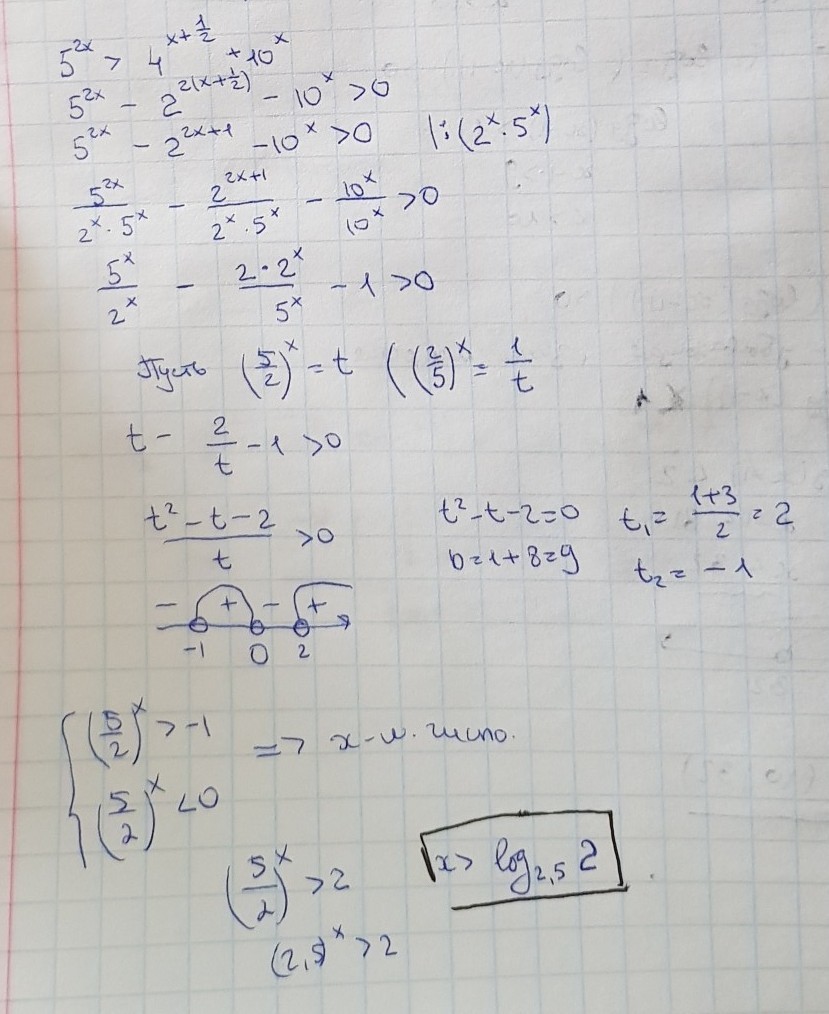 5^{2x} > 4^{x+\frac{1}{2}} + 10^x
5^{2x} - 2^{2(x+\frac{1}{2})} - 10^x > 0
5^{2x} - 2^{2x+1} - 10^x > 0 |:(2^x · 5^x)
\frac{5^{2x}}{2^x · 5^x} - \frac{2^{2x+1}}{2^x · 5^x} - \frac{10^x}{10^x} > 0
\frac{5^x}{2^x} - \frac{2 · 2^x}{5^x} - 1 > 0
Пусть (\frac{5}{2})^x = t ((\frac{2}{5})^x = \frac{1}{t}
t - \frac{2}{t} - 1 > 0
\frac{t^2 - t - 2}{t} > 0 t^2 - t - 2 = 0 t_1 = \frac{1+3}{2} = 2
D = 1 + 8 = 9 t_2 = -1
- + - +
-1 0 2
(\frac{5}{2})^x > -1
=> x - число.
(\frac{5}{2})^x < 0
(\frac{5}{2})^x > 2 x > log_{2,5} 2
(2,5)^x > 2